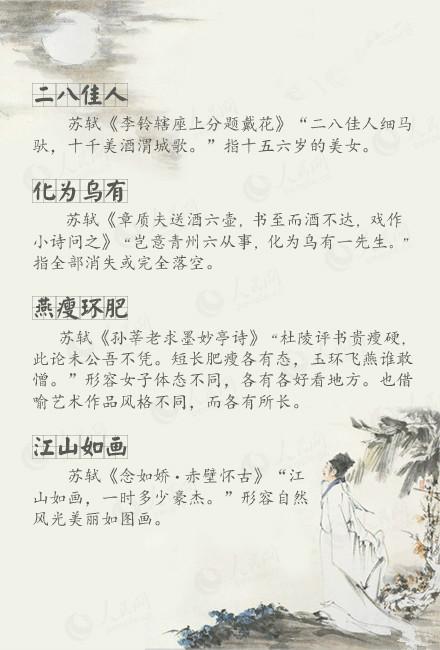 二八佳人
苏轼《李铃辖座上分题戴花》“二八佳人细马
驮，十千美酒渭城歌。”指十五六岁的美女。
化为乌有
苏轼《章质夫送酒六壶，书至而酒不达，戏作
小诗问之》“岂意青州六从事，化为乌有一先生。”
指全部消失或完全落空。
燕瘦环肥
苏轼《孙莘老求墨妙亭诗》“杜陵评书贵瘦硬，
此论未公吾不凭。短长肥瘦各有态，玉环飞燕谁敢
憎。”形容女子体态不同，各有各好看地方。也借
喻艺术作品风格不同，而各有所长。
江山如画
苏轼《念如娇·赤壁怀古》“江
山如画，一时多少豪杰。”形容自然
风光美丽如图画。